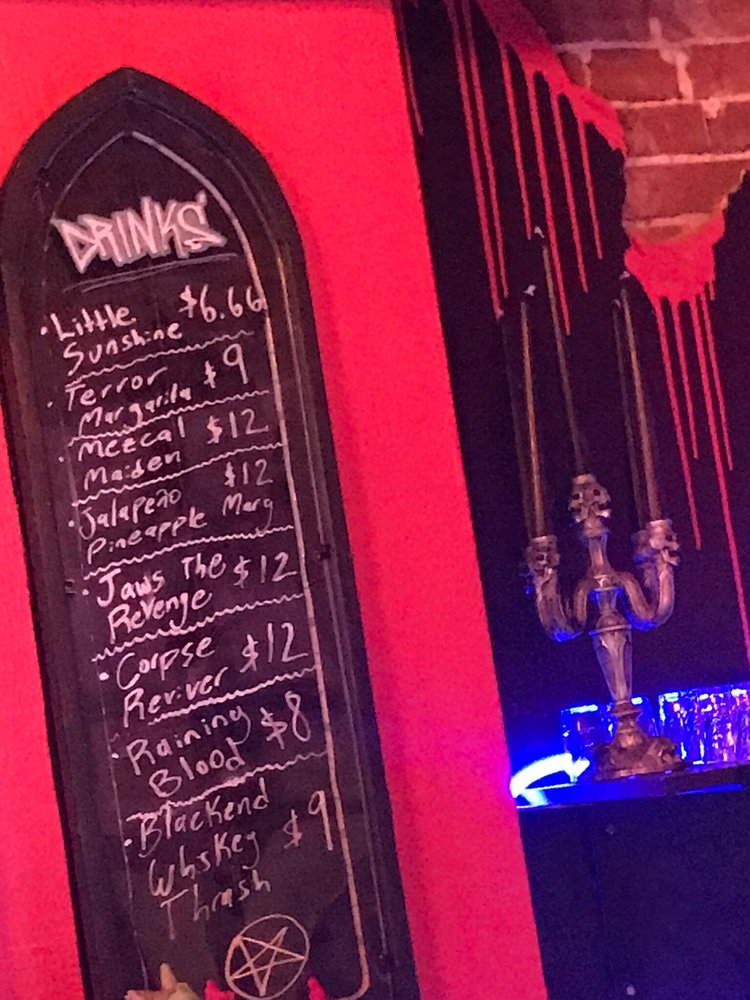 DRINKS
· Little $6.66
Sunshine
· Terror $9
Margarita
· Mezcal $12
Maiden
· Jalapeño $12
Pineapple Marg
· Jaws The $12
Revenge
· Corpse $12
Reviver
· Raining $8
Blood
· Blackend
Whskey $9
Thrash